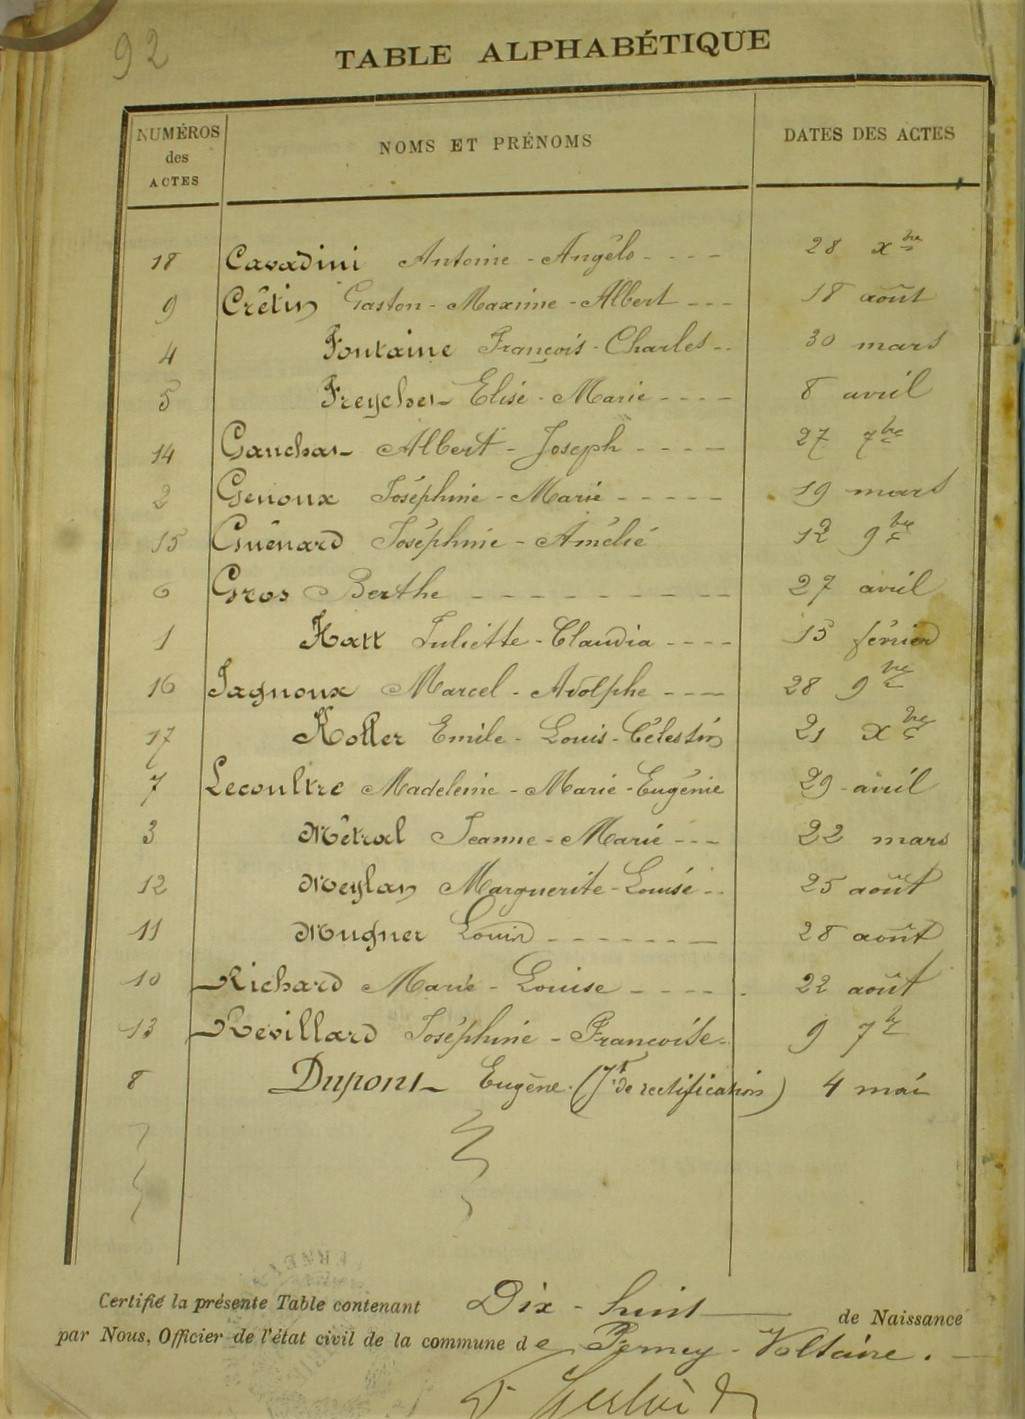 92
TABLE ALPHABÉTIQUE
NUMÉROS des ACTES NOMS ET PRÉNOMS DATES DES ACTES
18 Cavadini Antoine - Angélo - - - - 28 xbre
9 Crêtin Gaston - Maxime - Albert - - - 18 août
4 Fontaine François - Charles - - 30 mars
5 Freycher Elise - Marie - - - - 8 avril
14 Albert - Joseph - - - - 27 7bre
2 Genoux Joséphine - Marie - - - - - 19 mars
15 Guénard Joséphine - Amélie 12 9bre
6 Gros Berthe - - - - - - - - - - 27 avril
1 Hatt Juliette - Claudia - - - - 15 février
16 Jagnoux Marcel - Adolphe - - - 28 9bre
17 Koller Emile - Louis - Célestin 21 xbre
7 Lecoultre Madeleine - Marie - Eugénie 29 avril
3 Métral Jeanne - Marie - - - 22 mars
12 Meylan Marguerite - Louise - - 25 août
11 Mugner Louis - - - - - - - 28 août
10 Richard Marie - Louise - - - - - 22 août
13 Revillard Joséphine - Françoise - 9 7bre
8 Dupont Eugène. (Jt de rectification) 4 mai
Certifié la présente Table contenant Dix - huit de Naissance
par Nous, Officier de l'état civil de la commune de Ferney - Voltaire.